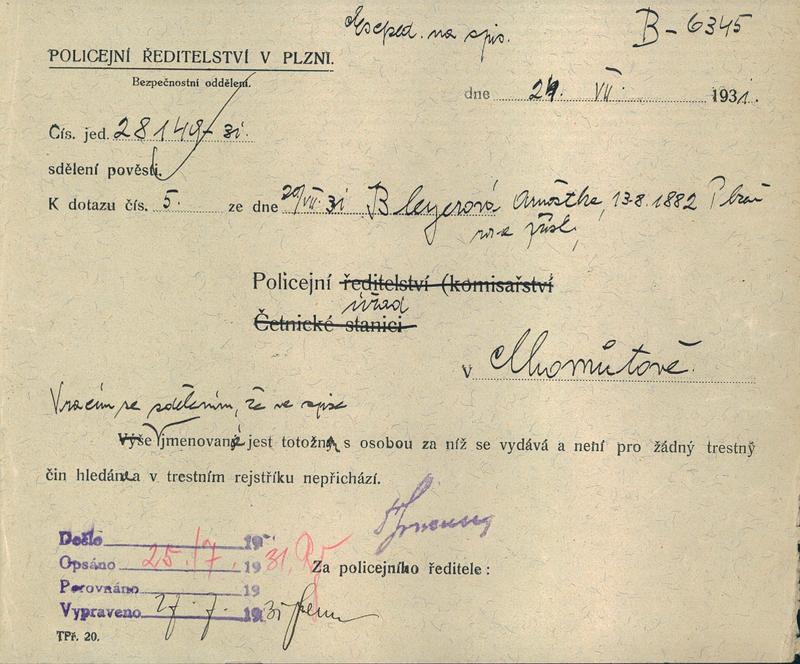 Exped. na spis.
B-6345
POLICEJNÍ ŘEDITELSTVÍ V PLZNI.
Bezpečnostní oddělení.
dne 24. VII. 1931.
Čís. jed. 28149-31.
sdělení pověsti.
K dotazu čís. 5. ze dne 20/VII. 31 Bleyerová Arnoštka, 13.8.1882 Plzeň
Policejní ředitelství (komisařství
úřad
Četnické stanici
v Chomůtově.
Vracím se sdělením, že ve spise
Výše jmenovaná jest totožna s osobou za níž se vydává a není pro žádný trestný
čin hledána a v trestním rejstříku nepřichází.
Došlo 19
Opsáno 25./7. 1931.
Za policejního ředitele:
Porovnáno 19
Vypraveno 27.7. 1931
TPř. 20.